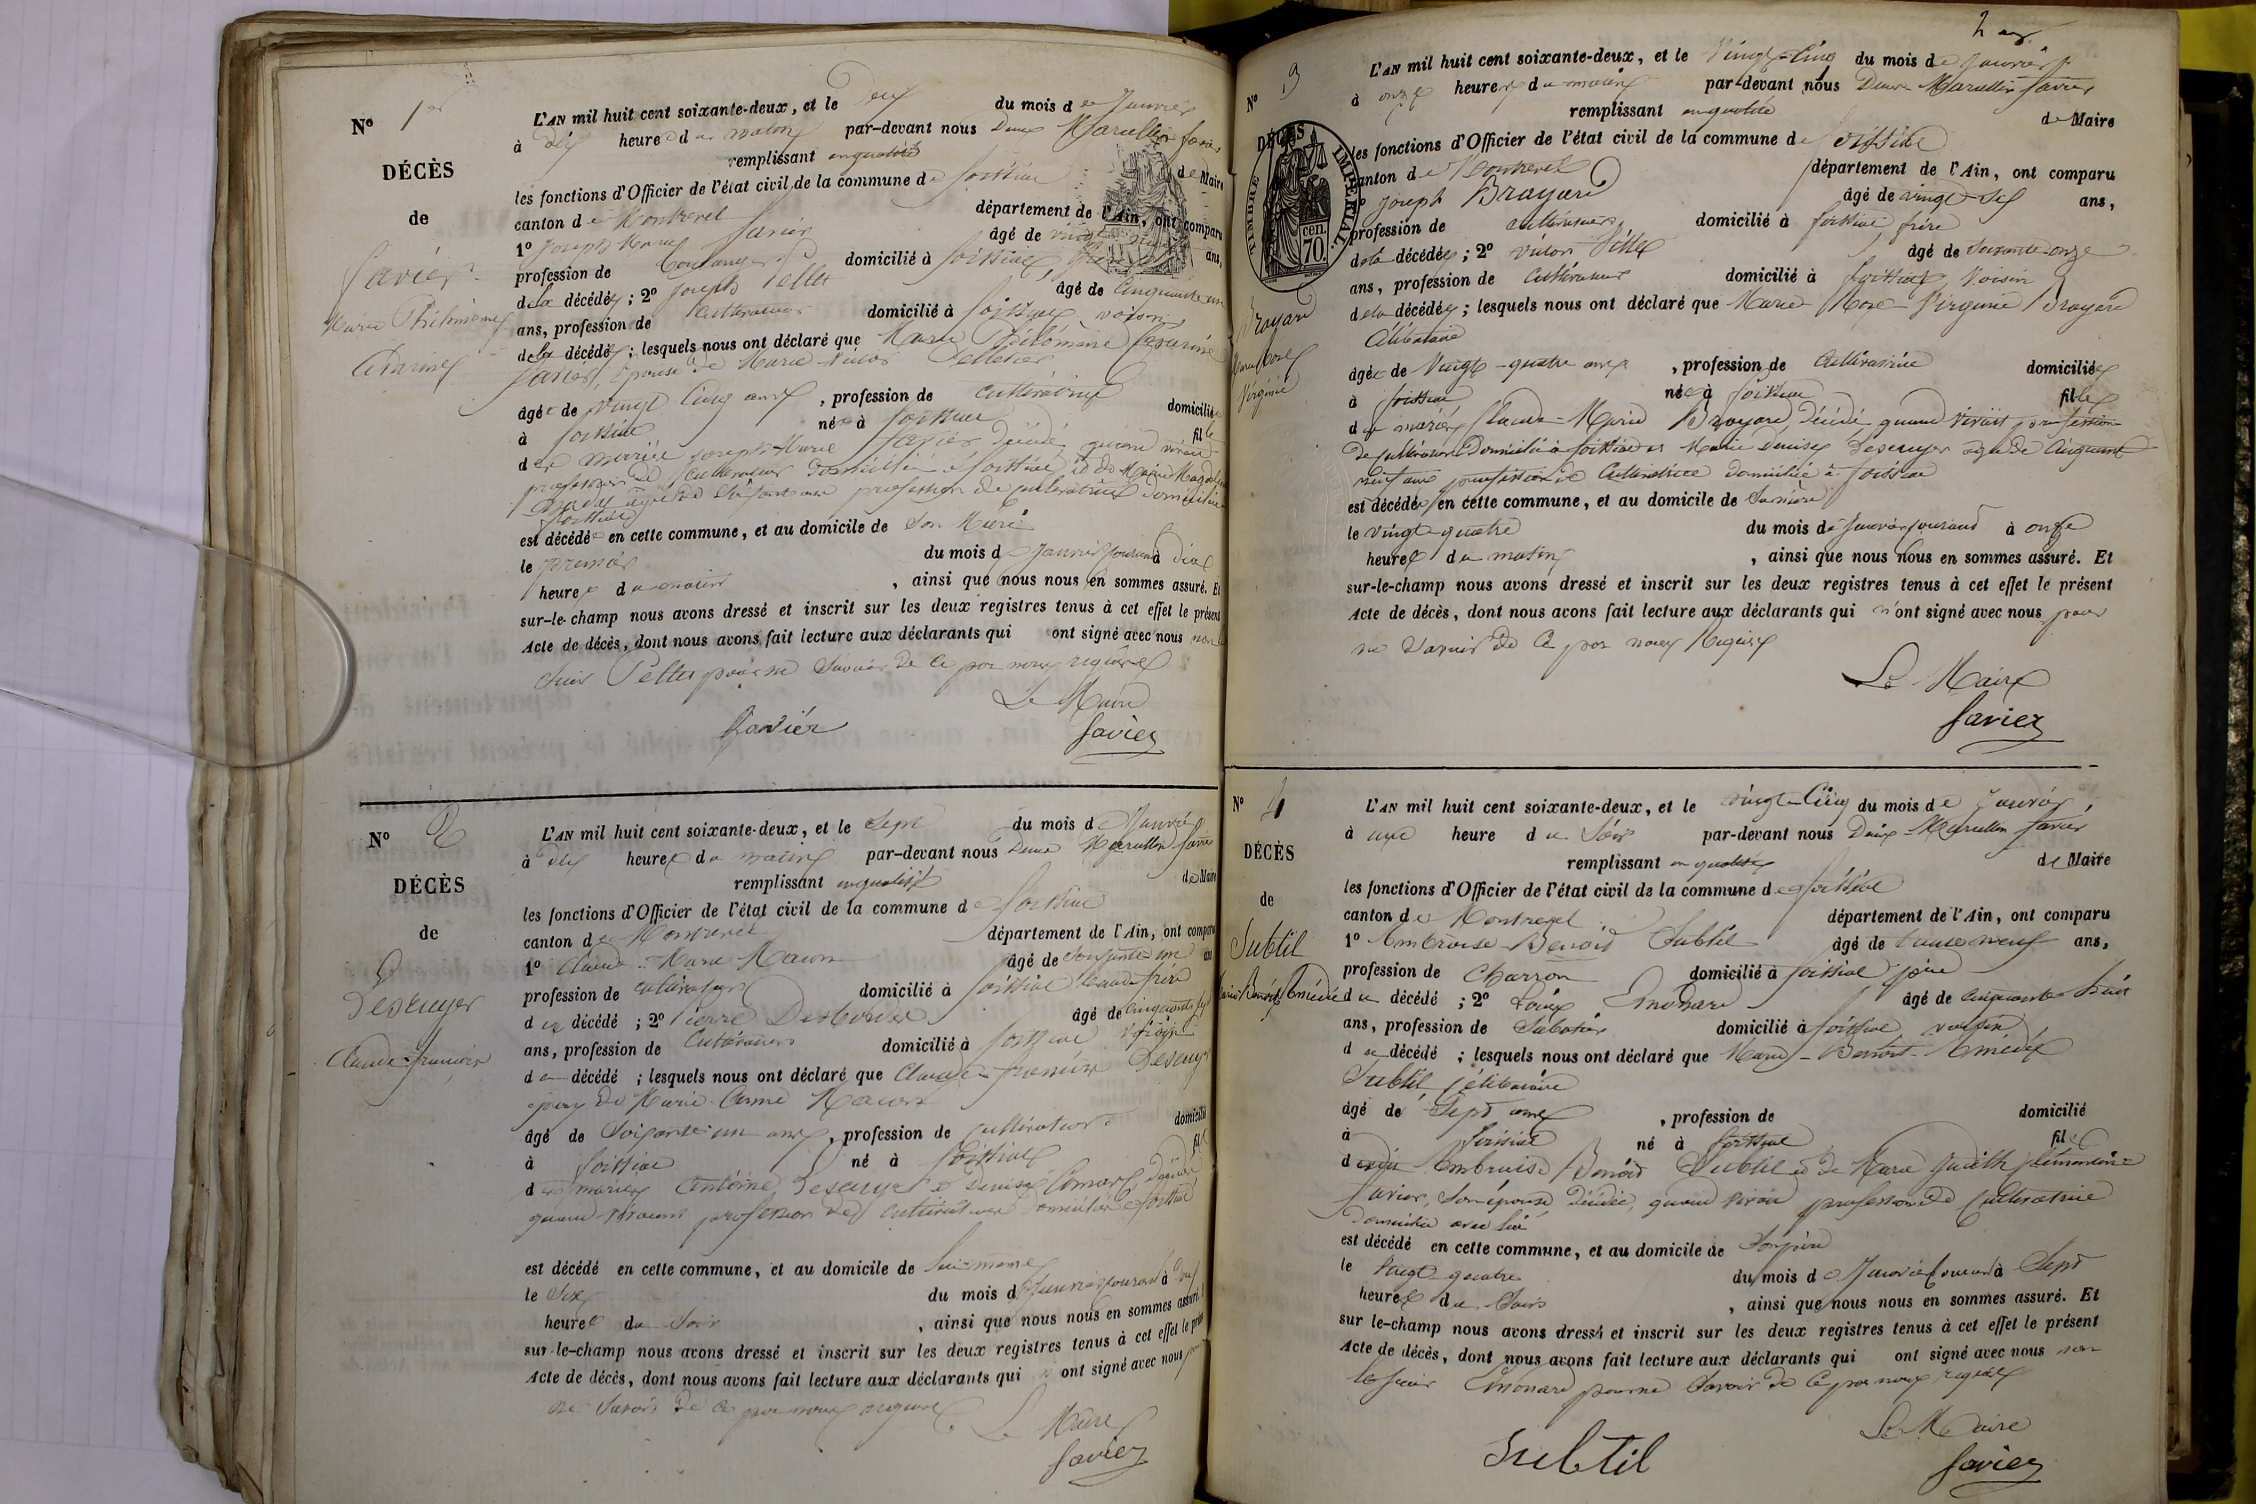 N° 1er
DÉCÈS
de
Favier
Marie Philomène
L'AN mil huit cent soixante-deux, et le deux du mois de Janvier
à dix heures du matin par-devant nous Marcellin Favier
remplissant en qualité de Maire
les fonctions d'Officier de l'état civil de la commune de Foissiat
canton de Montrevel département de l'Ain, ont comparu
1° Joseph Marie Favier âgé de vingt ans,
profession de domicilié à Foissiat, frère
de la décédée ; 2° Joseph Pellet âgé de Cinquante un
ans, profession de Cultivateur domicilié à Foissiat voisin
de la décédée ; lesquels nous ont déclaré que Marie Philomène
Favier, épouse de Marie Pelletier
âgée de vingt Cinq ans, profession de Cultivatrice domiciliée
à Foissiat née à Foissiat fille
de mariés Joseph Marie Favier décédé quand vivait
profession de Cultivateur domicilié à Foissiat, et de Marie
profession de Cultivatrice domiciliée
Foissiat
est décédée en cette commune, et au domicile de Son Mari
le premier du mois de Janvier Courant à dix
heures du matin, ainsi que nous nous en sommes assuré. Et
sur-le-champ nous avons dressé et inscrit sur les deux registres tenus à cet effet le présent
Acte de décès, dont nous avons fait lecture aux déclarants qui ont signé avec nous non
Pellet pour ne Savoir de Ce par nous requis
Le Maire
Favier Favier
N° 2
DÉCÈS
de
Descuyer
Claude-
L'AN mil huit cent soixante-deux, et le Sept du mois de Janvier
à dix heures du matin par-devant nous Marcellin Favier
remplissant en qualité de Maire
les fonctions d'Officier de l'état civil de la commune de Foissiat
canton de Montrevel département de l'Ain, ont comparu
1° Claude-Marie âgé de Soixante un ans
profession de Cultivateur domicilié à Foissiat beau frère
du décédé ; 2° Pierre âgé de Cinquante
ans, profession de Cultivateur domicilié à Foissiat voisin
du décédé ; lesquels nous ont déclaré que Claude- Descuyer
époux de Marie-Anne
âgé de Soixante un ans, profession de Cultivateur domicilié
à Foissiat né à Foissiat fils
des mariés Antoine Descuyer et Denise décédés
quand vivaient profession de Cultivateurs domiciliés à Foissiat
est décédé en cette commune, et au domicile de Lui-même
le Six du mois de Janvier Courant à
heures du Soir, ainsi que nous nous en sommes assuré. Et
sur-le-champ nous avons dressé et inscrit sur les deux registres tenus à cet effet le présent
Acte de décès, dont nous avons fait lecture aux déclarants qui n'ont signé avec nous pour
ne Savoir de Ce par nous requis
Le Maire
Favier
N° 3
DÉCÈS
TIMBRE IMPÉRIAL.
cen.
70.
Brayard
Marie Rose
Virginie
L'AN mil huit cent soixante-deux, et le Vingt-Cinq du mois de Janvier
à onze heures du matin par-devant nous Marcellin Favier
remplissant en qualité de Maire
les fonctions d'Officier de l'état civil de la commune de Foissiat
canton de Montrevel département de l'Ain, ont comparu
1° Joseph Brayard âgé de vingt-six ans,
profession de Cultivateur, domicilié à Foissiat, frère
de la décédée ; 2° Victor âgé de Soixante-onze
ans, profession de Cultivateur domicilié à Foissiat, Voisin
de la décédée ; lesquels nous ont déclaré que Marie Rose Virginie Brayard
Célibataire
âgée de Vingt-quatre ans, profession de Cultivatrice domiciliée
à Foissiat née à Foissiat fille
de mariés Claude-Marie Brayard, décédé quand vivait profession
de Cultivateur domicilié à Foissiat et Marie Denise Descuyer âgée de Cinquante
neuf ans profession de Cultivatrice domiciliée à Foissiat
est décédée en cette commune, et au domicile de Sa mère
le Vingt-quatre du mois de Janvier Courant à onze
heures du matin, ainsi que nous nous en sommes assuré. Et
sur-le-champ nous avons dressé et inscrit sur les deux registres tenus à cet effet le présent
Acte de décès, dont nous avons fait lecture aux déclarants qui n'ont signé avec nous pour
ne Savoir de Ce par nous Requis
Le Maire
Favier
N° 4
DÉCÈS
de
Subtil
Marie Benoît Amédée
L'AN mil huit cent soixante-deux, et le vingt-Cinq du mois de Janvier,
à une heure du Soir par-devant nous Marcellin Favier
remplissant en qualité de Maire
les fonctions d'Officier de l'état civil de la commune de Foissiat
canton de Montrevel département de l'Ain, ont comparu
1° Ambroise-Benoît Subtil âgé de trente neuf ans,
profession de Charron domicilié à Foissiat père
du décédé ; 2° Louis Emonard âgé de Cinquante huit
ans, profession de Sabotier domicilié à Foissiat, voisin
du décédé ; lesquels nous ont déclaré que Marie-Benoît-Amédée
Subtil Célibataire
âgé de Sept ans, profession de domicilié
à Foissiat né à Foissiat fils
dudit Ambroise Benoît Subtil et de Marie Judith
Favier, Son épouse décédée, quand vivait profession de Cultivatrice
domiciliée avec lui
est décédé en cette commune, et au domicile de Son père
le Vingt-quatre du mois de Janvier Courant à Sept
heures du Soir, ainsi que nous nous en sommes assuré. Et
sur le-champ nous avons dressé et inscrit sur les deux registres tenus à cet effet le présent
Acte de décès, dont nous avons fait lecture aux déclarants qui ont signé avec nous non
le sieur Emonard pour ne Savoir de Ce par nous requis
Le Maire
Subtil Favier